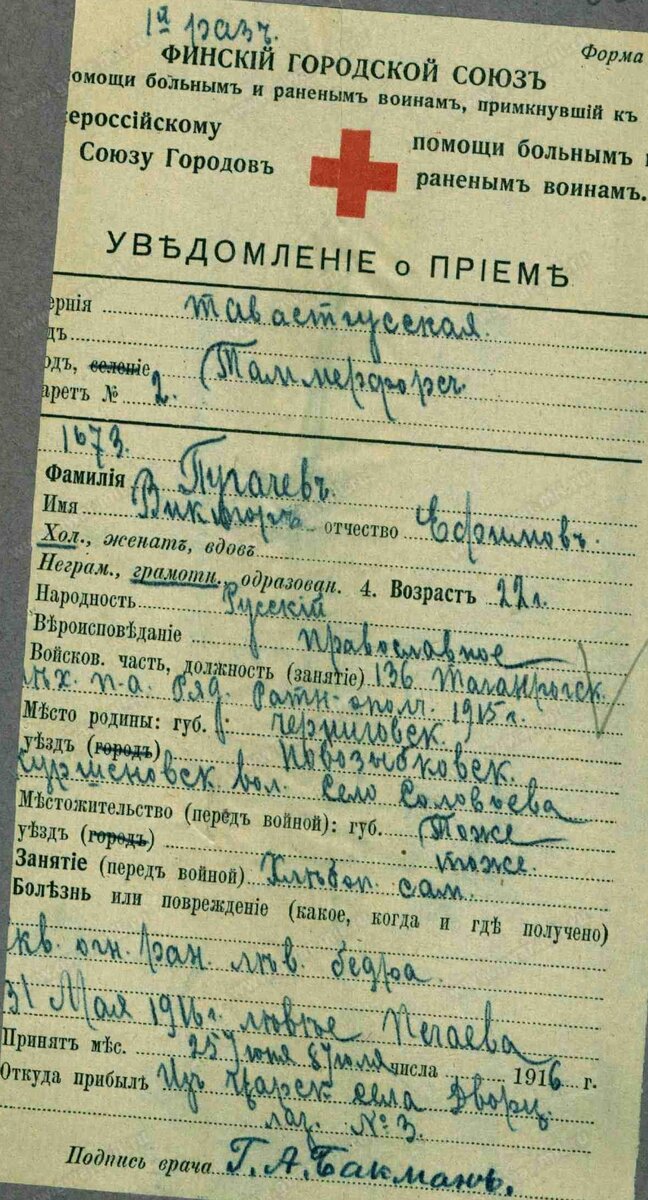 1й разъ.
Форма
ФИНСКІЙ ГОРОДСКОЙ СОЮЗЪ
омощи больнымъ и раненымъ воинамъ, примкнувшій къ
ероссійскому
Союзу Городовъ
помощи больнымъ
раненымъ воинамъ.
УВѢДОМЛЕНІЕ о ПРІЕМѢ
ернія Тавастгусская
дъ
одъ, селеніе Таммерфорсъ
аретъ № 2.
1673.
Фамилія Пугачевъ
Имя Викторъ отчество Ефимовъ.
Хол., женатъ, вдовъ
Неграм., грамотн., одразован. 4. Возрастъ 22 г.
Народность Русскій
Вѣроисповѣданіе Православное
Войсков. часть, должность (занятіе) 136 Таганрогск.
п-а. Ряд. Ратн. ополч. 1915 г.
Мѣсто родины: губ. Черниговск.
уѣздъ (городъ) Новозыбковск.
вол. Село Соловьева
Мѣстожительство (передъ войной): губ. Тоже
уѣздъ (городъ) тоже.
Занятіе (передъ войной) Хлѣбоп. сам.
Болѣзнь или поврежденіе (какое, когда и гдѣ получено)
кв. огн. ран. лѣв. бедра
31 Мая 1916 г.
Принятъ мѣс. 25 Іюня 8 Іюля числа 1916 г.
Откуда прибылъ Изъ Царск. села Дворц.
лаз. № 3.
Подпись врача Г. А. Бакманъ.